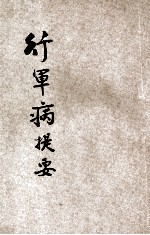 行軍病提要